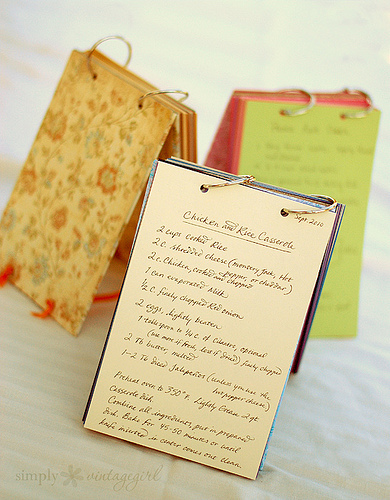 Sept. 2010
Chicken and Rice Casserole
2 cups cooked Rice
2 c. shredded cheese (monterey jack, Hot
pepper, or cheddar)
2 c. Chicken, cooked and chopped
1 can evaporated milk
1/2 c. finely chopped Red onion
2 eggs, lightly beaten
1 tablespoon to 1/4 c. of cilantro, optional
(use more if fresh, less if dried) finely chopped
2 Tb butter, melted
1-2 Tb diced Jalapeños (unless you use the
hot pepper cheese)
Preheat oven to 350°F. Lightly Grease 2 qt
Casserole dish.
Combine all ingredients, put in prepared
dish. Bake for 45-50 minutes or until
knife inserted in center comes out clean.
simply vintagegirl